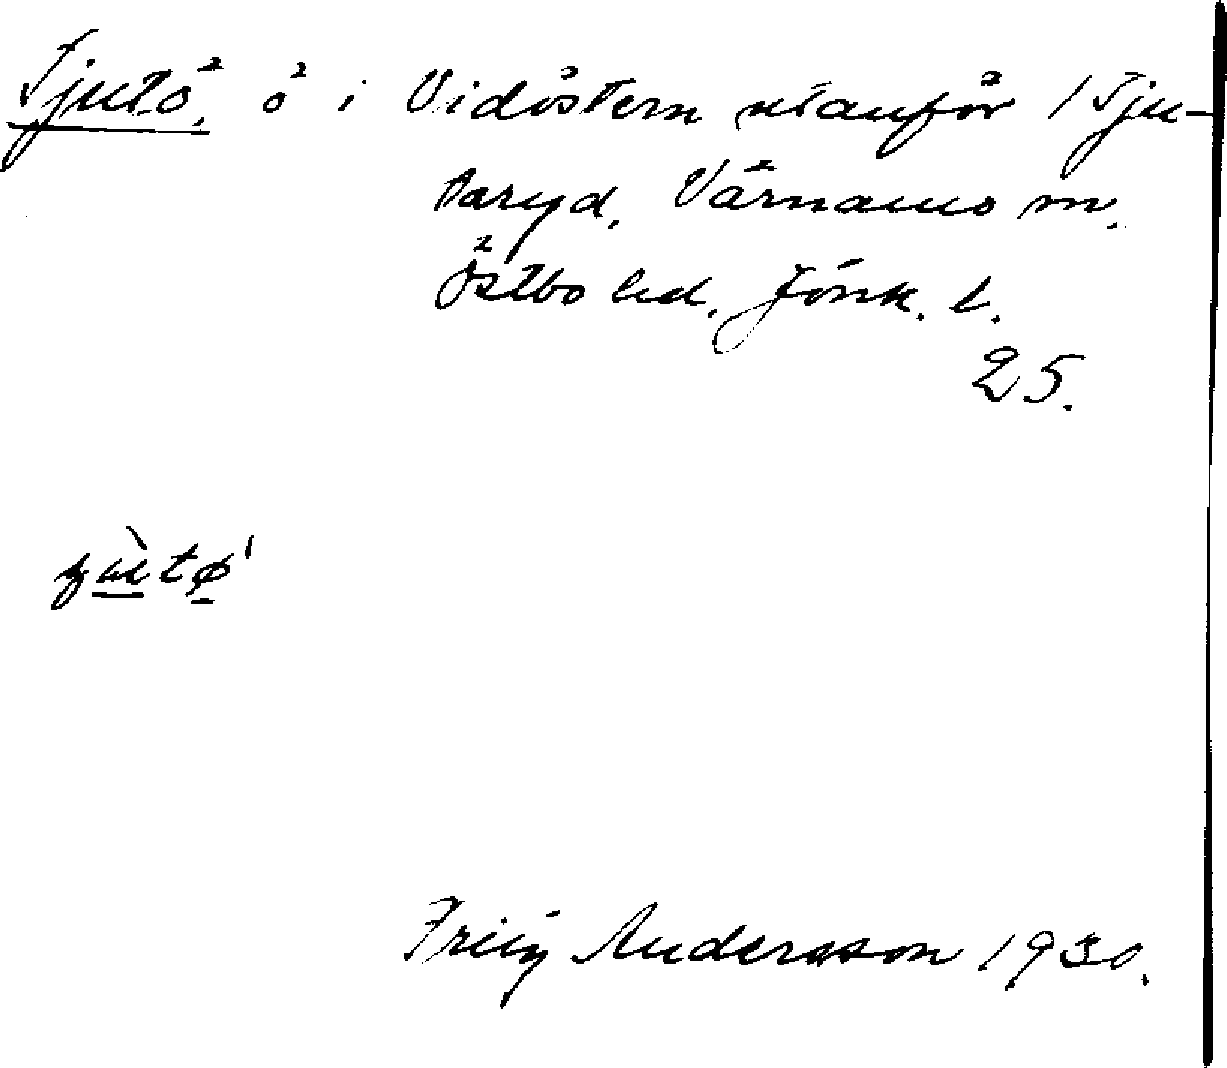 Tjutö, ö i Vidöstern utanför Tju-
taryd, Värnamo m.
Östbo hd, Jönk. l.
25.
Fritz Andersson 1930.